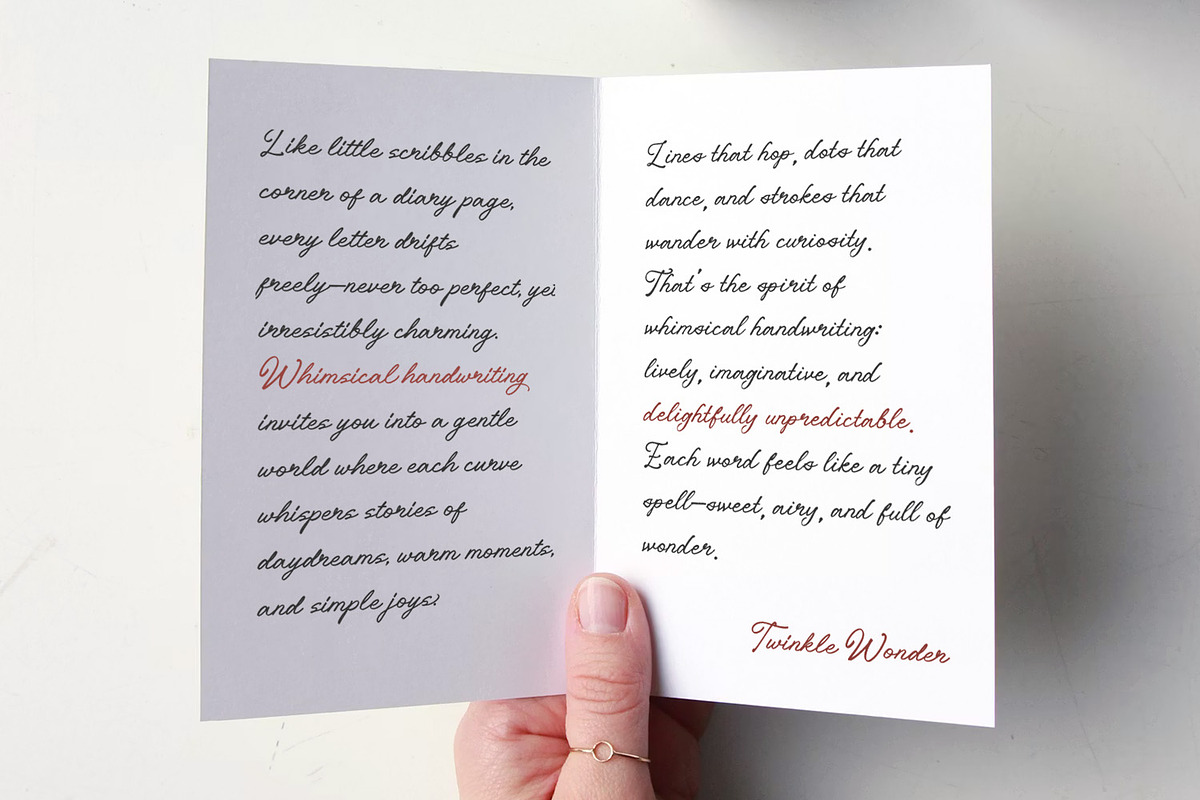 Like little scribbles in the
corner of a diary page,
every letter drifts
freely—never too perfect, yet
irresistibly charming.
Whimsical handwriting
invites you into a gentle
world where each curve
whispers stories of
daydreams, warm moments,
and simple joys.
Lines that hop, dots that
dance, and strokes that
wander with curiosity.
That's the spirit of
whimsical handwriting:
lively, imaginative, and
delightfully unpredictable.
Each word feels like a tiny
spell—sweet, airy, and full of
wonder.
Twinkle Wonder